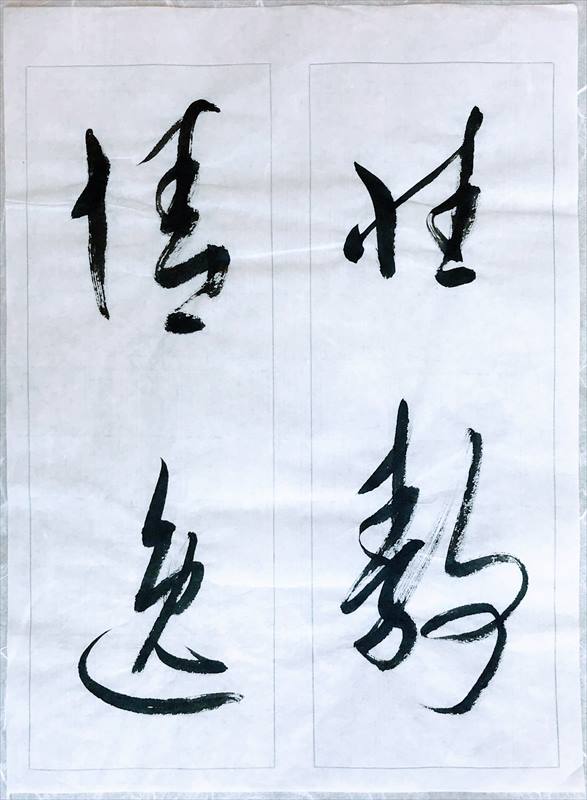 性靜
情逸